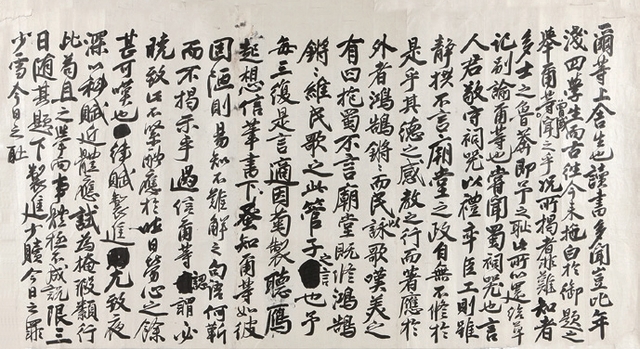 爾等上舍生也讀書多聞豈比年
淺四學生而古往今未拖白於御題之
擧爾等聞之乎況所揭者非難知者
多士之魯莽卽予之恥此所以還給草
記別諭爾等也嘗聞蜀祠器也言
人君敬守祠器以禮率臣工則雖
靜拱不言廟堂之政自無不修於
是乎其德之感敎之行而著應於
外者鴻鵠鏘鏘而民以詠歌嘆美之
有曰抱蜀不言廟堂旣修鴻鵠
鏘鏘維民歌之此管子之言也予
每三復是言適因菊製聽鴈
起想信筆書下蓋知爾等如彼
固陋則易知不難解之句語何靳
而不揭示乎過信爾等認謂必
曉致此不緊酬應於昨日勞心之餘
甚可嘆也律賦製進尤致夜
深以科賦近體應試爲掩暇顚行
此苟且之擧而事體極不成說限三
日隨其題下製進少贖今日之罪
少雪今日之恥